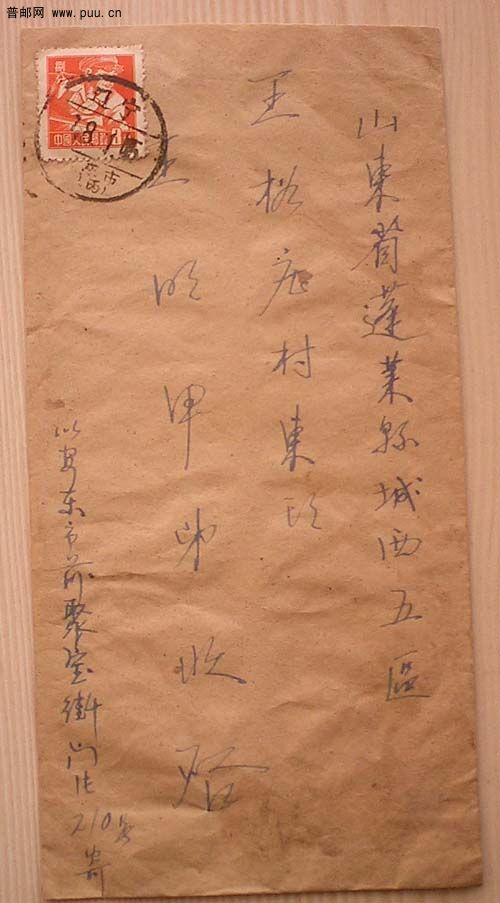 普邮网
www.puu.cn
山東省蓬莱縣城西五區
王格庄村東頭
王明甲弟收啓
安东市前聚宝街门牌210号寄
捌分
8
中國人民邮政
辽宁